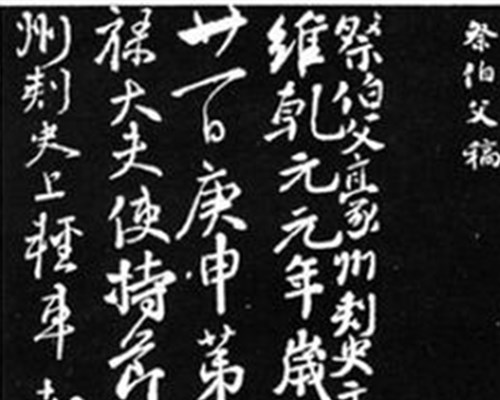 祭伯父稿
祭伯父豪州刺史文
維乾元元年歲
廿一日庚申第
禄大夫使持節
州刺史上輕車